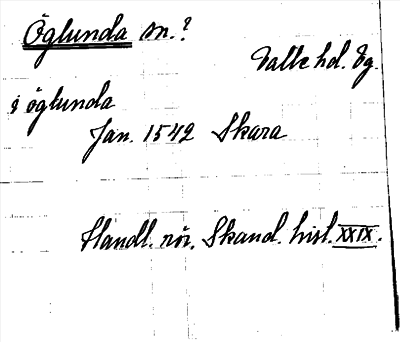 Öglunda sn.?
Valle hd. Vg.
i öglunda
Jan. 1542 Skara
Handl. rör. Skand. hist. XXIX.